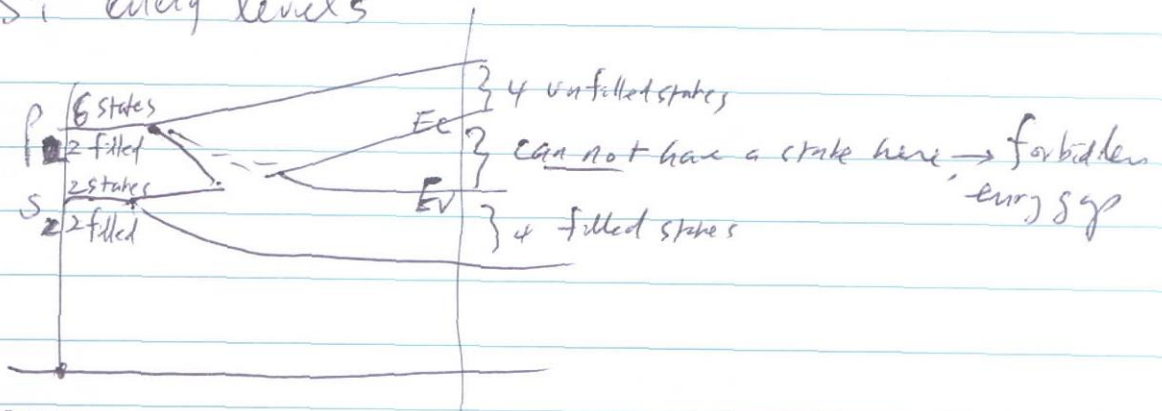 Si energy levels
6 states
P
2 filled
2 states
S
2 filled
4 unfilled states
Ec
cannot have a state here, → forbidden
energy gap
Ev
4 filled states